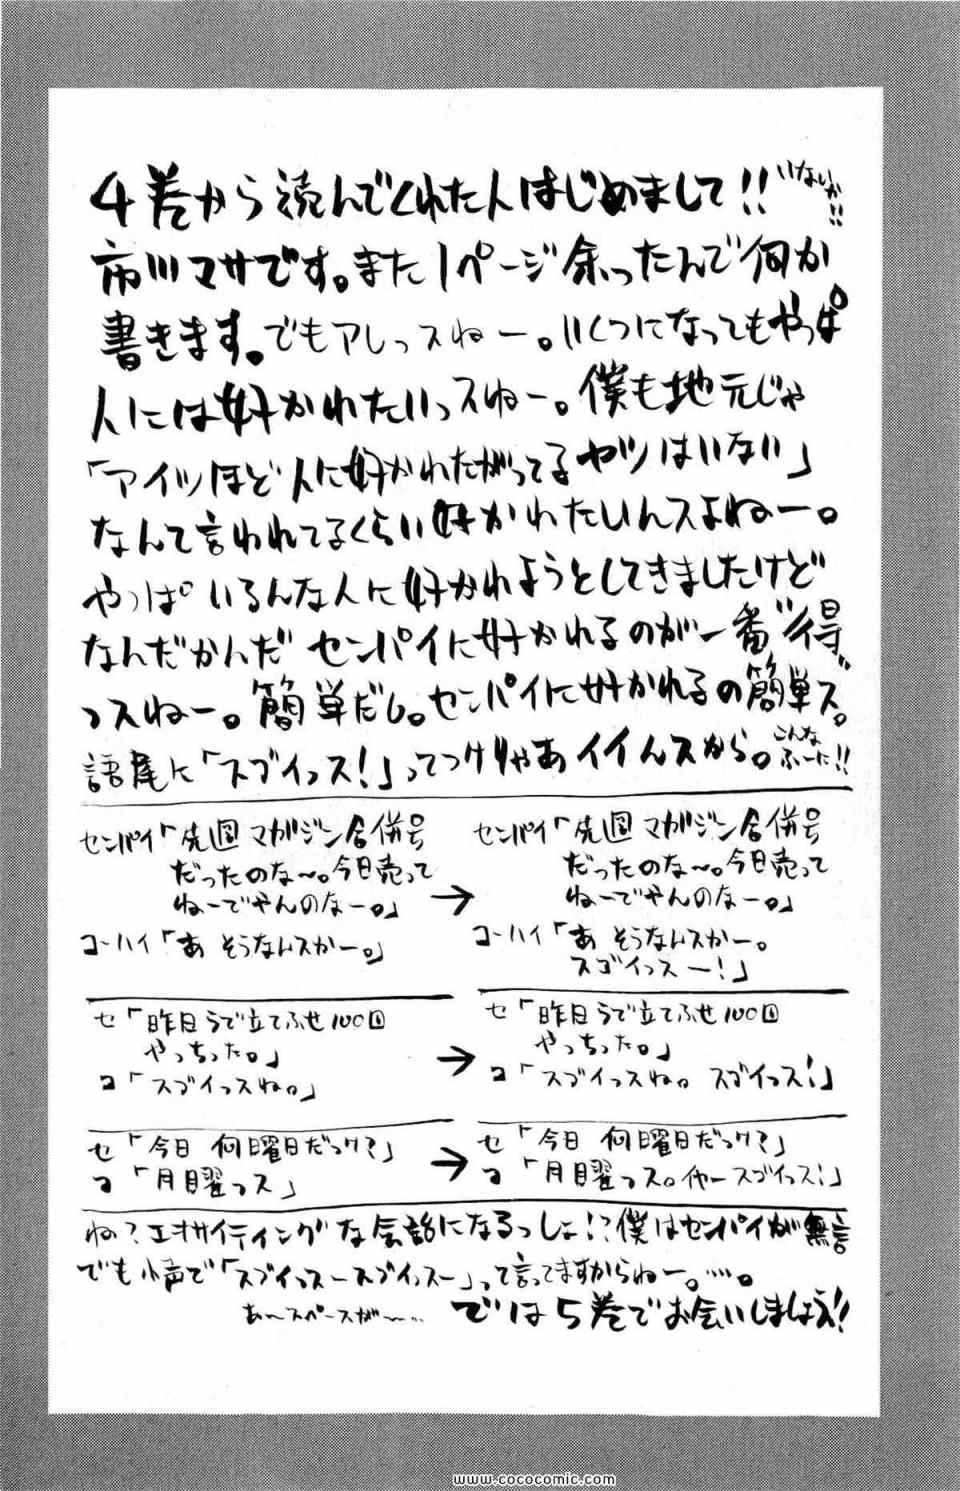 4巻から読んでくれた人はじめまして!! いないか!!
市川マサです。また1ページ余ったんで何か
書きます。でもアレっスねー。いくつになってもやっぱ
人には好かれたいっスねー。僕も地元じゃ
「アイツほど人に好かれたがってるヤツはいない」
なんて言われてるくらい好かれたいんスよねー。
やっぱ いろんな人に好かれようとしてきましたけど
なんだかんだ センパイに好かれるのが一番"得"
っスねー。簡単だし。センパイに好かれるの簡単ス。
語尾に「スゴイっス!」ってつけりゃあイイんスから。こんな
ふーに!!
センパイ「先週マガジン合併号
だったのな〜。今日売って
ねーでやんのなー。」
コーハイ「あ そうなんスかー。」
→
センパイ「先週マガジン合併号
だったのな〜。今日売って
ねーでやんのなー。」
コーハイ「あ そうなんスかー。
スゴイっスー!」
セ「昨日うで立てふせ100回
やっちった。」
コ「スゴイっスね。」
→
セ「昨日うで立てふせ100回
やっちった。」
コ「スゴイっスね。スゴイっス!」
セ「今日 何曜日だっけ?」
コ「月曜っス」
→
セ「今日 何曜日だっけ?」
コ「月曜っス。イヤースゴイっス!」
ね?エキサイティングな会話になるっしょ!?僕はセンパイが無言
でも小声で「スゴイっスースゴイっスー」って言ってますからねー。……。
あ〜スペースが〜… では5巻でお会いしましょう!!
www.cococomic.com